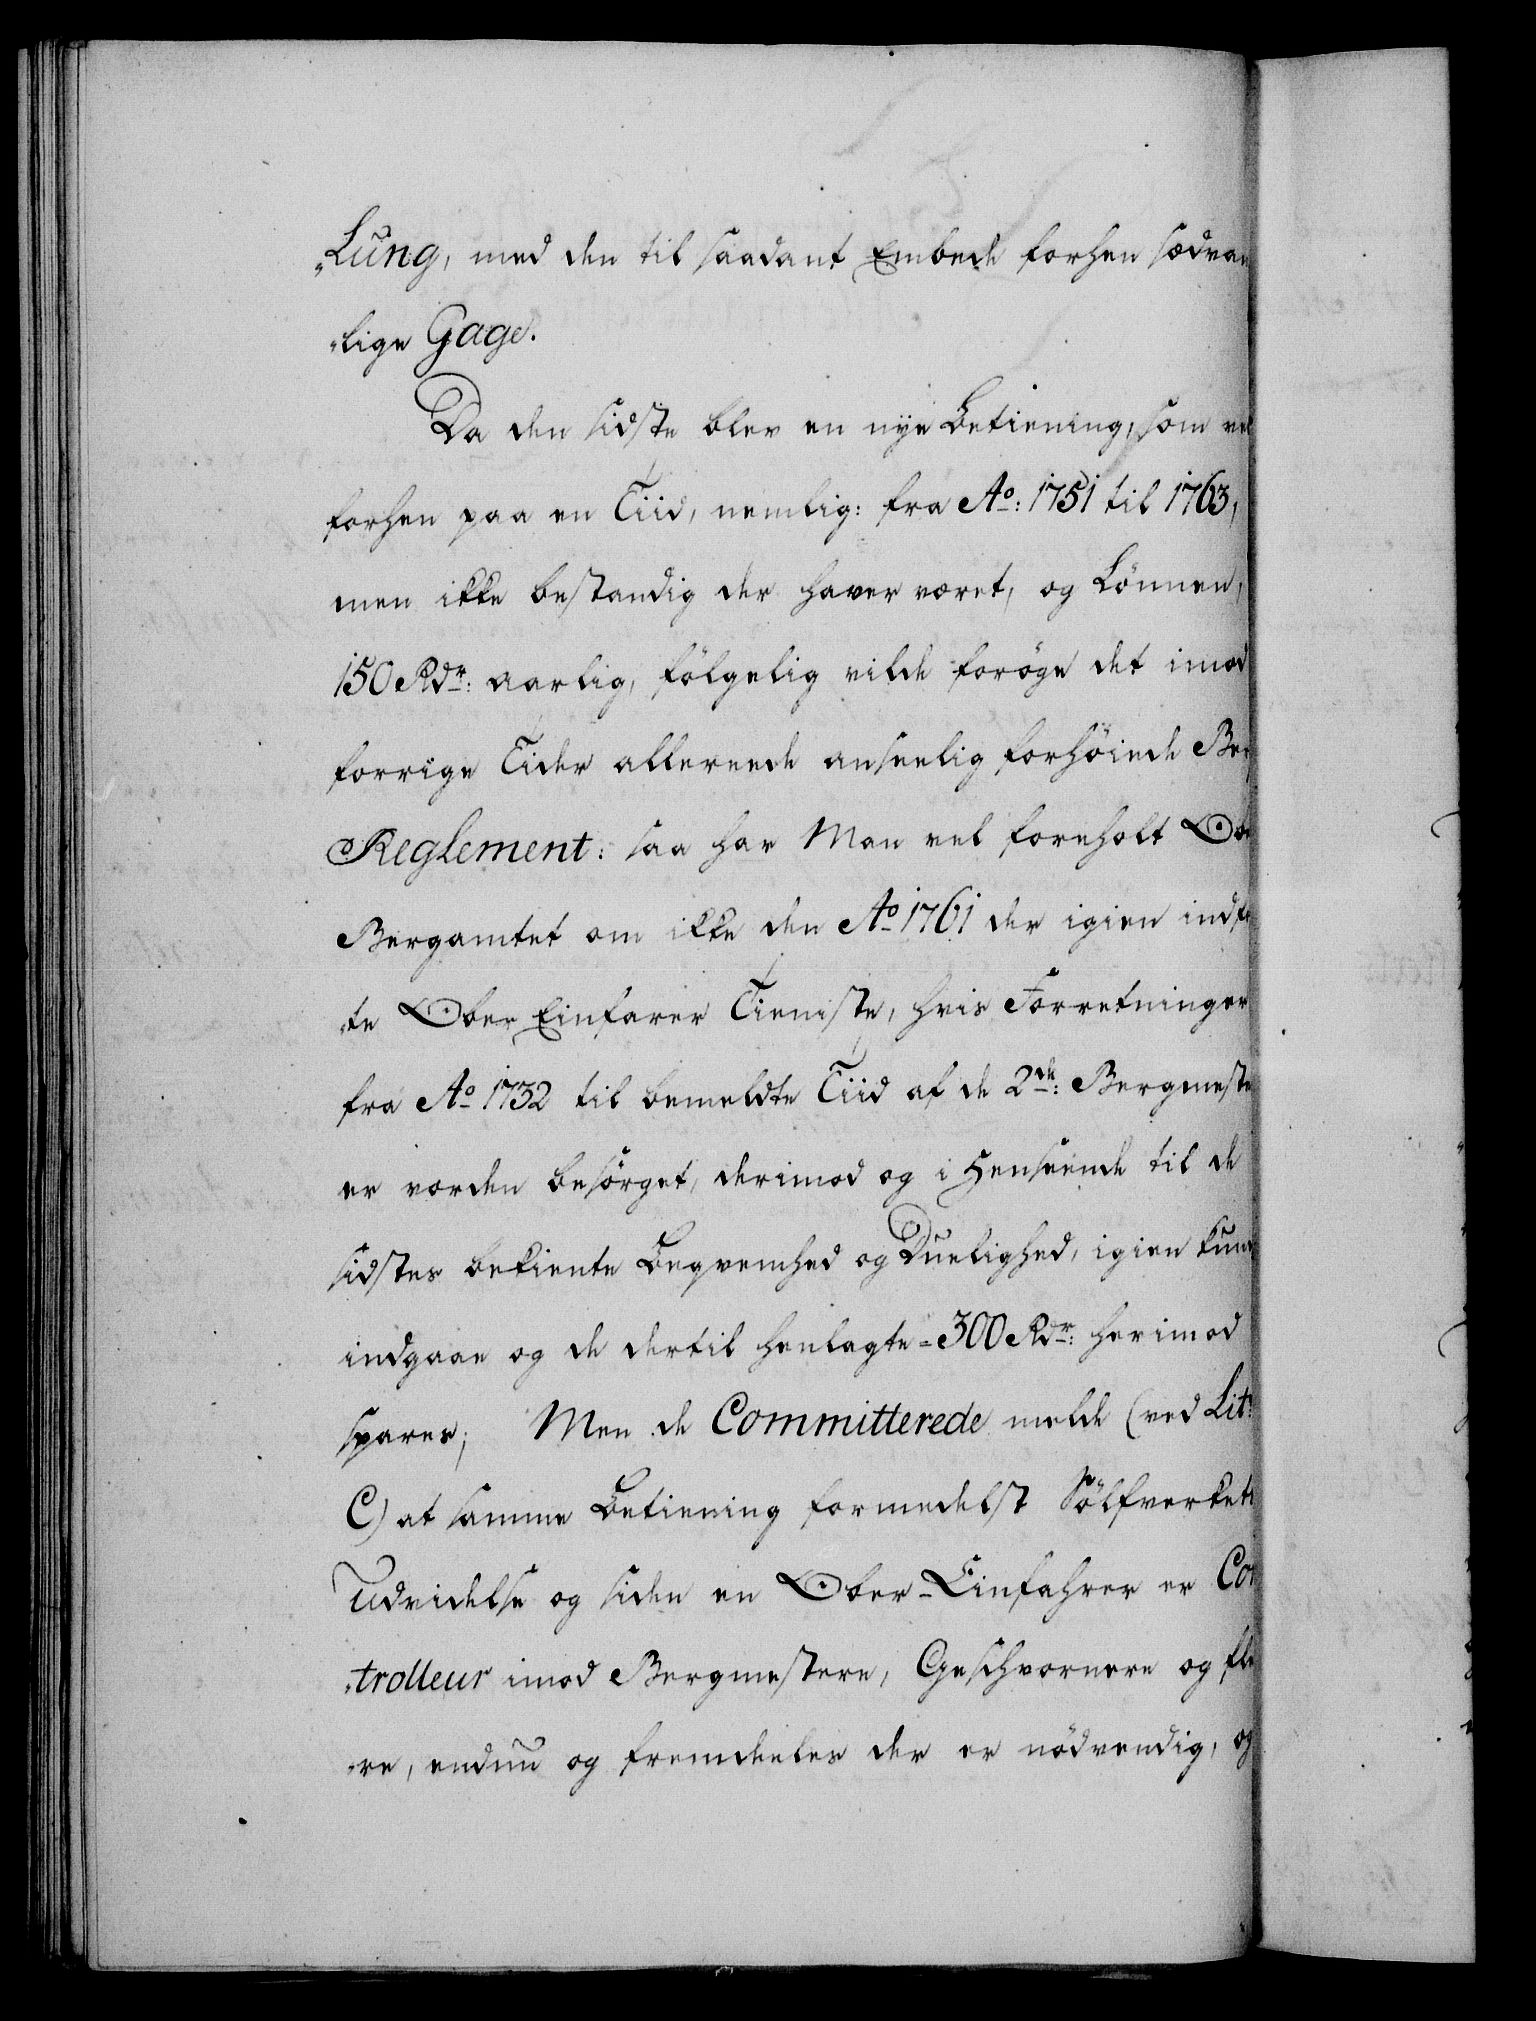 „Lung, med den til saadant Embede forhen sædvan
„lige Gage.
Da den sidste blev en nye Betiening, som vel
forhen paa en Tiid, nemlig: fra Ao: 1751 til 1763,
men ikke bestandig der haver været, og Lønnen,
150 Rdr: aarlig, følgelig vilde forøge det imod
forrige Tider allereede anseelig forhøiede Berg
Reglement: saa har Man vel foreholt Ober
Bergamtet om ikke den Ao 1761 der igien indfø
„te Ober Einfarer Tieniste, hvis Forretninger
fra Ao 1732 til bemeldte Tiid af de 2de: Bergmeste
er vorden besørget, derimod og i Henseende til de
sidstes bekiente Beqvemhed og Duelighed, igien kunde
indgaae og de dertil henlagte = 300 Rdr: herimod
spares; Men de Committerede melde (ved Litr:
C) at samme Betiening formedelst Sølfverkets
Udvidelse og siden en Ober-Einfahrer er Con
„trolleur imod Bergmestere, Geschvornere og fle
„re, endnu og fremdeeles der er nødvendig, og